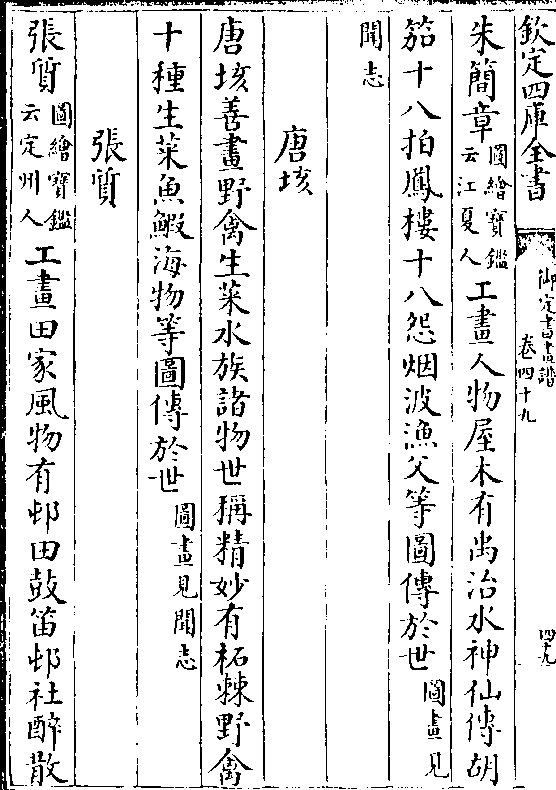 欽定四庫全書
御定書畫譜
卷四十九
四十九
朱簡章圖繪寶鑑云江夏人工畫人物屋木有禹治水神仙傳胡
笳十八拍鳳樓十八怨烟波漁父等圖傳於世圖畫見
聞志
唐垓
唐垓善畫野禽生菜水族諸物世稱精妙有柘棘野禽
十種生菜魚鰕海物等圖傳於世圖畫見聞志
張質
張質圖繪寶鑑云定州人工畫田家風物有邨田鼓笛邨社醉散